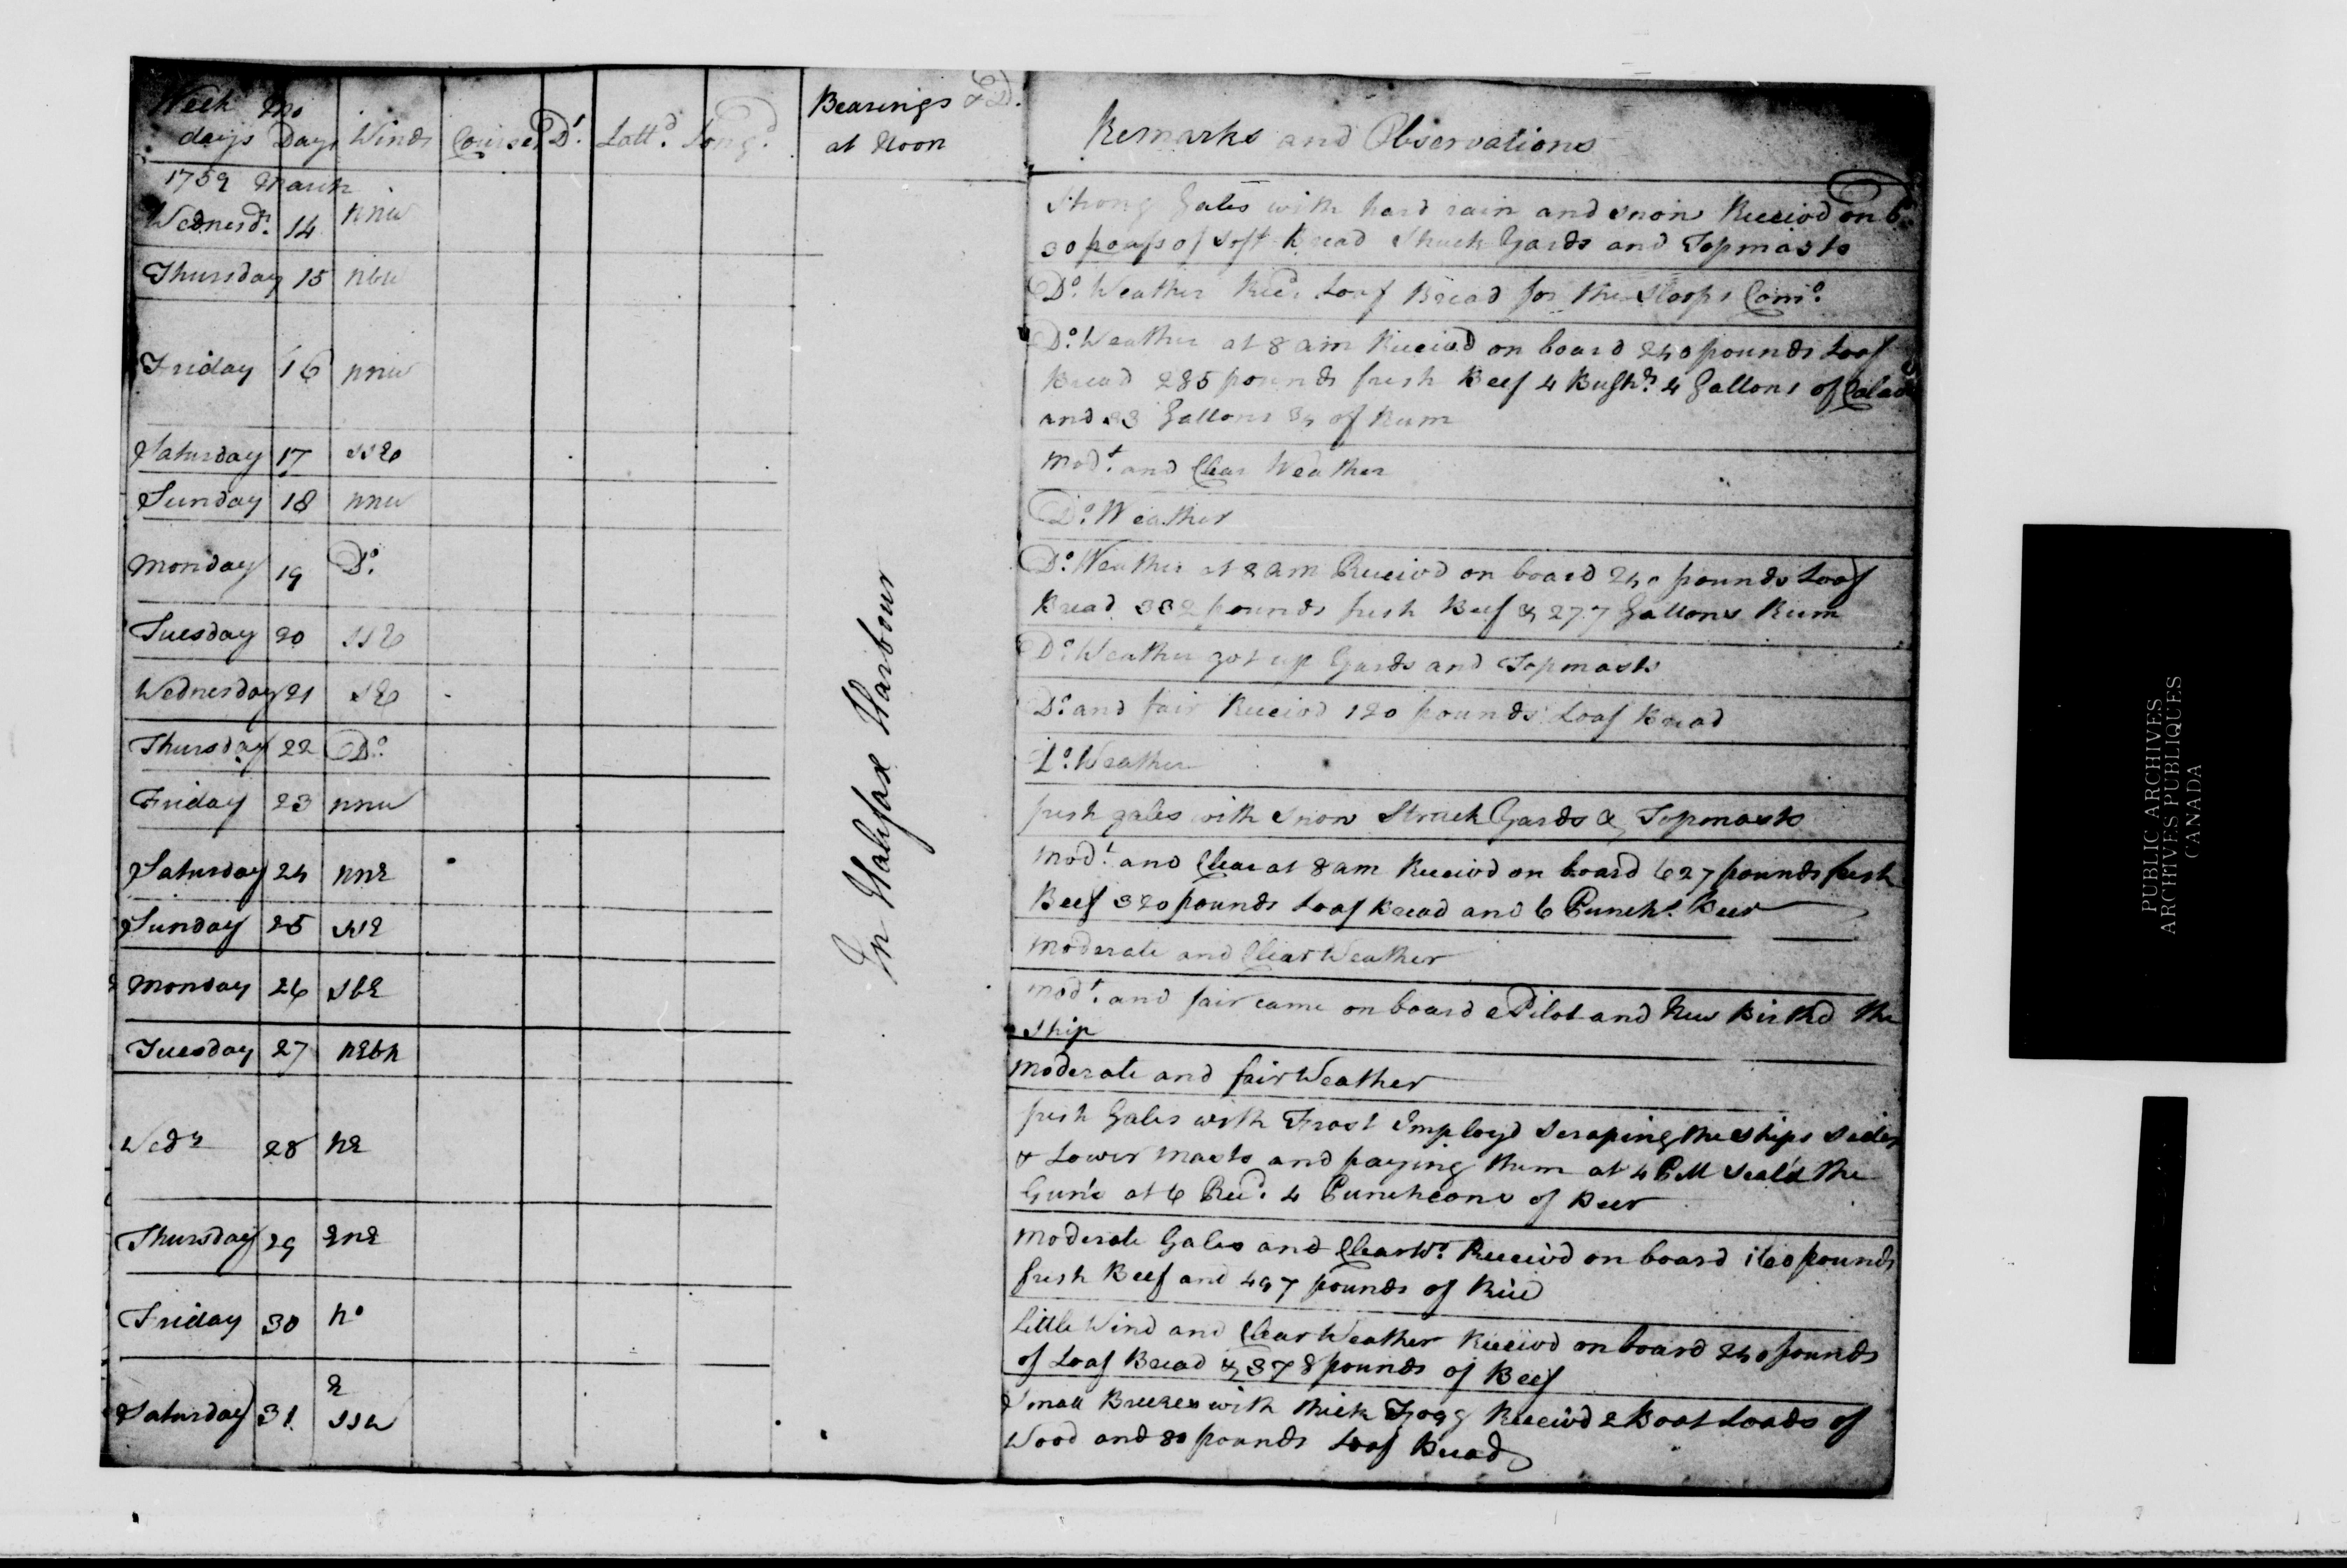 Week days Mo Days Winds Courses Dt. Lattd. Longd. Bearings & D. at Noon Remarks and Observations
1759 March
Wednesd. 14 nnw Strong Gales with hard rain and snow Receivd on b
30 poss of Soft Bread Struck Yards and Topmasts
Thursday 15 nbw Do. Weather Recd Loaf Bread for the Sloops Com
Friday 16 nnw Do. Weather at 8 am Receivd on board 240 pounds Loaf
Bread 285 pounds fresh Beef 4 Bushs. 4 Gallons of
and 33 Gallons 3/4 of Rum
Saturday 17 ssE Modt. and Clear Weather
Sunday 18 nnw Do. Weather
Monday 19 Do. Do. Weather at 8 am Receivd on board 240 pounds Loaf
Bread 332 pounds fresh Beef & 27.7 Gallons Rum
Tuesday 20 ssE Do. Weather got up Yards and Topmasts
Wednesday 21 sE Do. and fair Receivd 120 pounds Loaf Bread
Thursday 22 Do. Do. Weather
Friday 23 nnw fresh gales with Snow Struck Yards & Topmasts
Saturday 24 nnE Modt. and Clear at 8 am Receivd on board 627 pounds fresh
Beef 320 pounds Loaf Bread and 6 Punchs. Beer
Sunday 25 ssE Moderate and Clear Weather
Monday 26 sbE Modt. and fair came on board a Pilot and New Birthd the
Ship
Tuesday 27 nEbn Moderate and fair Weather
Wedn 28 nE fresh Gales with Frost Employd Scraping the Ships Sides
& Lower Masts and paying them at 4 PM Seal'd the
Gun's at 6 Recd. 4 Puncheons of Beer
Thursday 29 EnE Moderate Gales and Clear Wr. Receivd on board 160 pounds
fresh Beef and 497 pounds of Rice
Friday 30 no Little Wind and Clear Weather Receivd on board 240 pounds
of Loaf Bread & 378 pounds of Beef
Saturday 31 E ssw Small Breezes with thick Fogg Receivd 2 Boat Loads of
Wood and 80 pounds Loaf Bread
In Halifax Harbour
PUBLIC ARCHIVES
ARCHIVES PUBLIQUES
CANADA